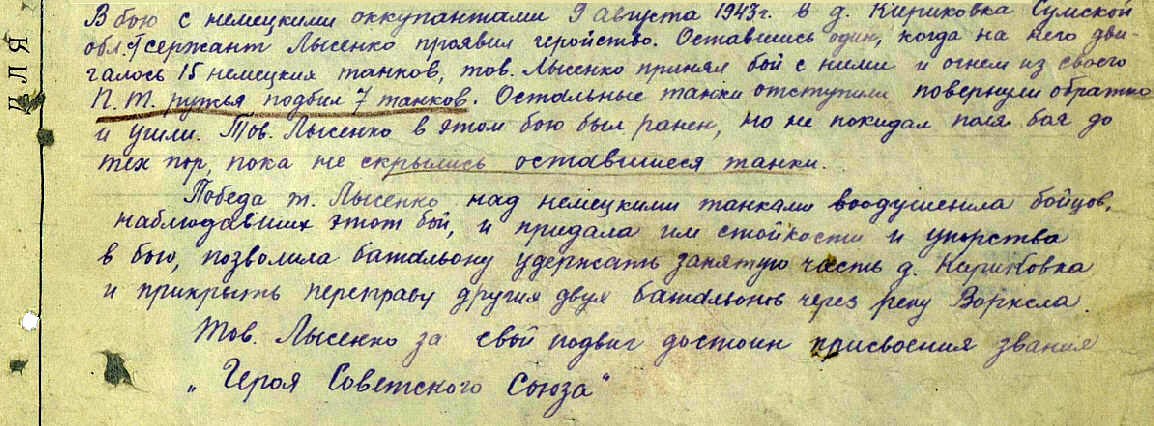 В бою с немецкими оккупантами 9 августа 1943г. в д. Кириковка Сумской
обл. сержант Лысенко проявил геройство. Оставшись один, когда на него дви-
галось 15 немецких танков, тов. Лысенко принял бой с ними и огнем из своего
П.Т. ружья подбил 7 танков. Остальные танки отступили повернули обратно
и ушли. Тов. Лысенко в этом бою был ранен, но не покидал поля боя до
тех пор, пока не скрылись оставшиеся танки.
Победа т. Лысенко над немецкими танками воодушевила бойцов,
наблюдавших этот бой, и придала им стойкости и упорства
в бою, позволила батальону удержать занятую часть д. Кириковка
и прикрыть переправу других двух батальонов через реку Ворксла.
Тов. Лысенко за свой подвиг достоин присвоения звания
„Героя Советского Союза"